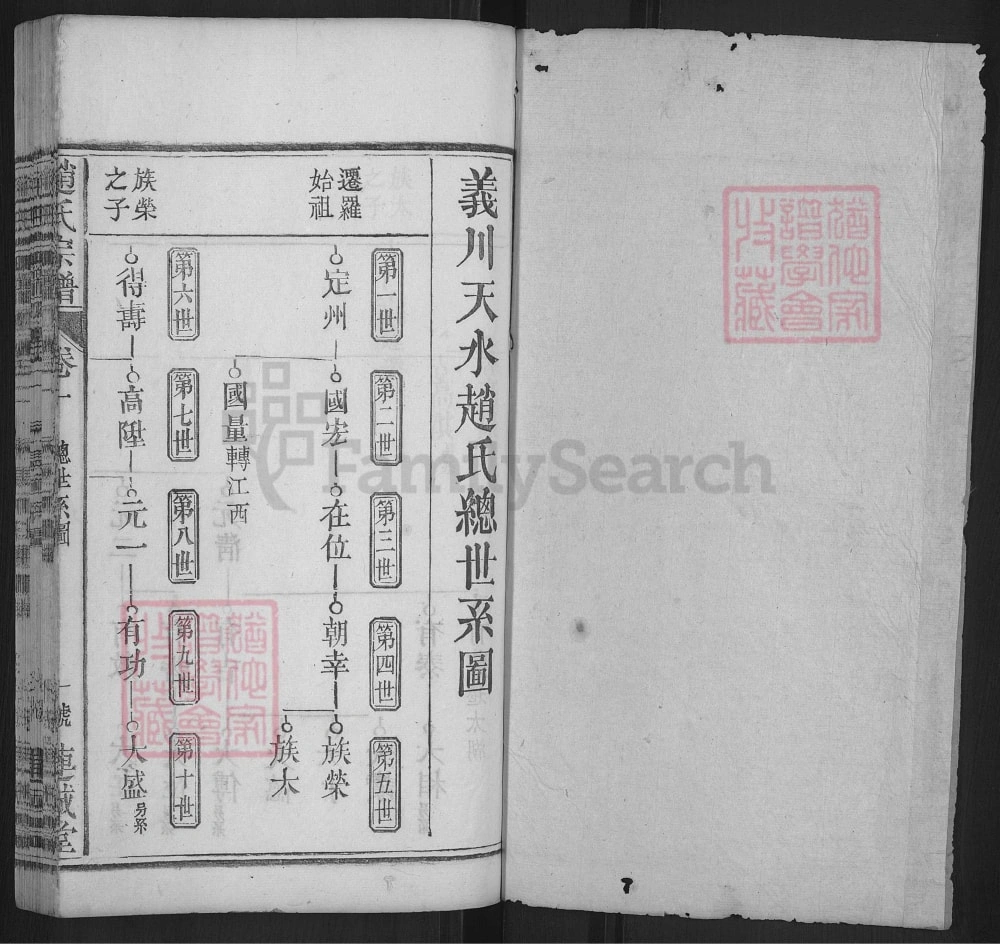 義川天水趙氏總世系圖
第一世
第二世
第三世
第四世
第五世
遷羅
始祖
定州
國宏
在位
朝幸
族榮
族太
國量轉江西
第六世
第七世
第八世
第九世
第十世
族榮
之子
得壽
高陞
元一
有功
大盛
另系
趙氏宗譜
卷一
總世系圖
一號
FamilySearch
譜學會
藏
譜學會
藏